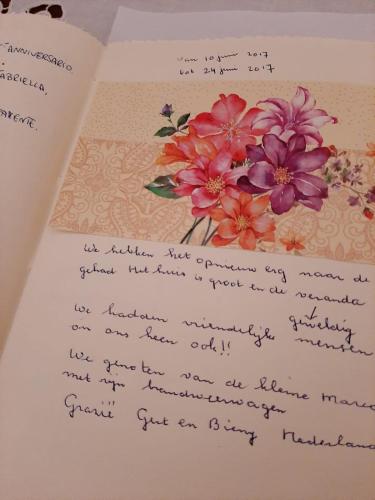 L'ANNIVERSARIO
ABRIELLA,
van 10 juni 2017
tot 24 juni 2017
We hebben het opnieuw erg naar de
gehad Het huis is groot en de veranda
↓
geweldig
We hadden vriendelijke mensen
om ons heen ook!!
We genoten van de kleine Marco
met zijn brandweerwagen
Grazië Gert en Bieny Nederland